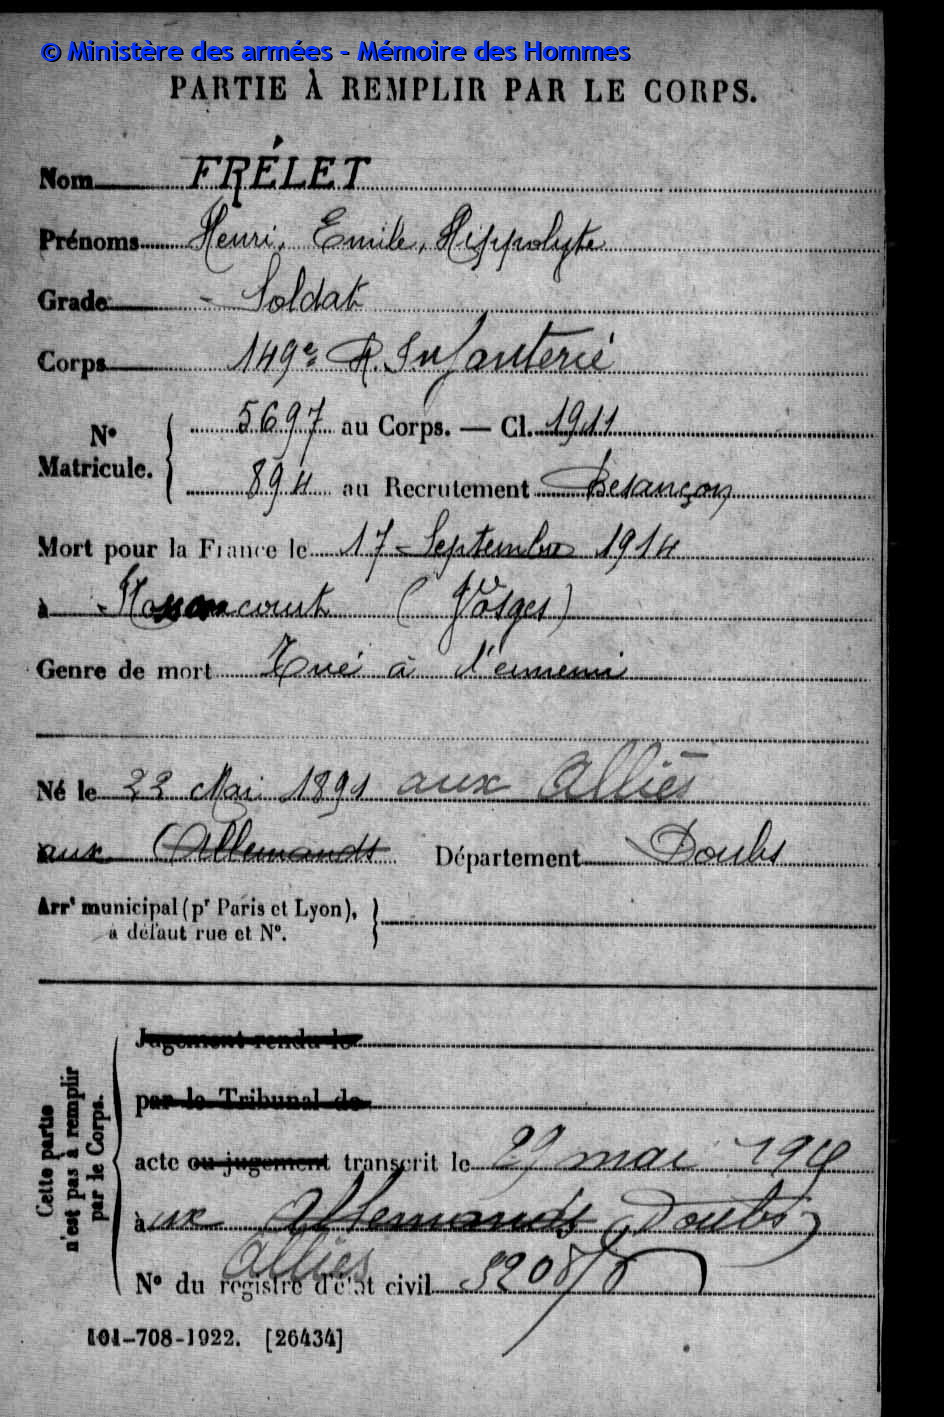 © Ministère des armées - Mémoire des Hommes
PARTIE À REMPLIR PAR LE CORPS.
Nom FRÉLET
Prénoms Henri, Emile, Hippolyte
Grade - Soldat
Corps 149e R. Infanterie
N° Matricule.
5697 au Corps. — Cl. 1911
894 au Recrutement Besançon
Mort pour la France le 17 Septembre 1914
à (Vosges)
Genre de mort Tué à l'ennemi
Né le 22 Mai 1891 aux Alliés
aux Allemands Département Doubs
Arrt municipal (pr Paris et Lyon),
à défaut rue et N°.
Cette partie
n'est pas à remplir
par le Corps.
Jugement rendu le
par le Tribunal de
acte ou jugement transcrit le 29 mai 19
à ux Allemands Doubs
Alliés
N° du registre d'état civil
101-708-1922. [26434]